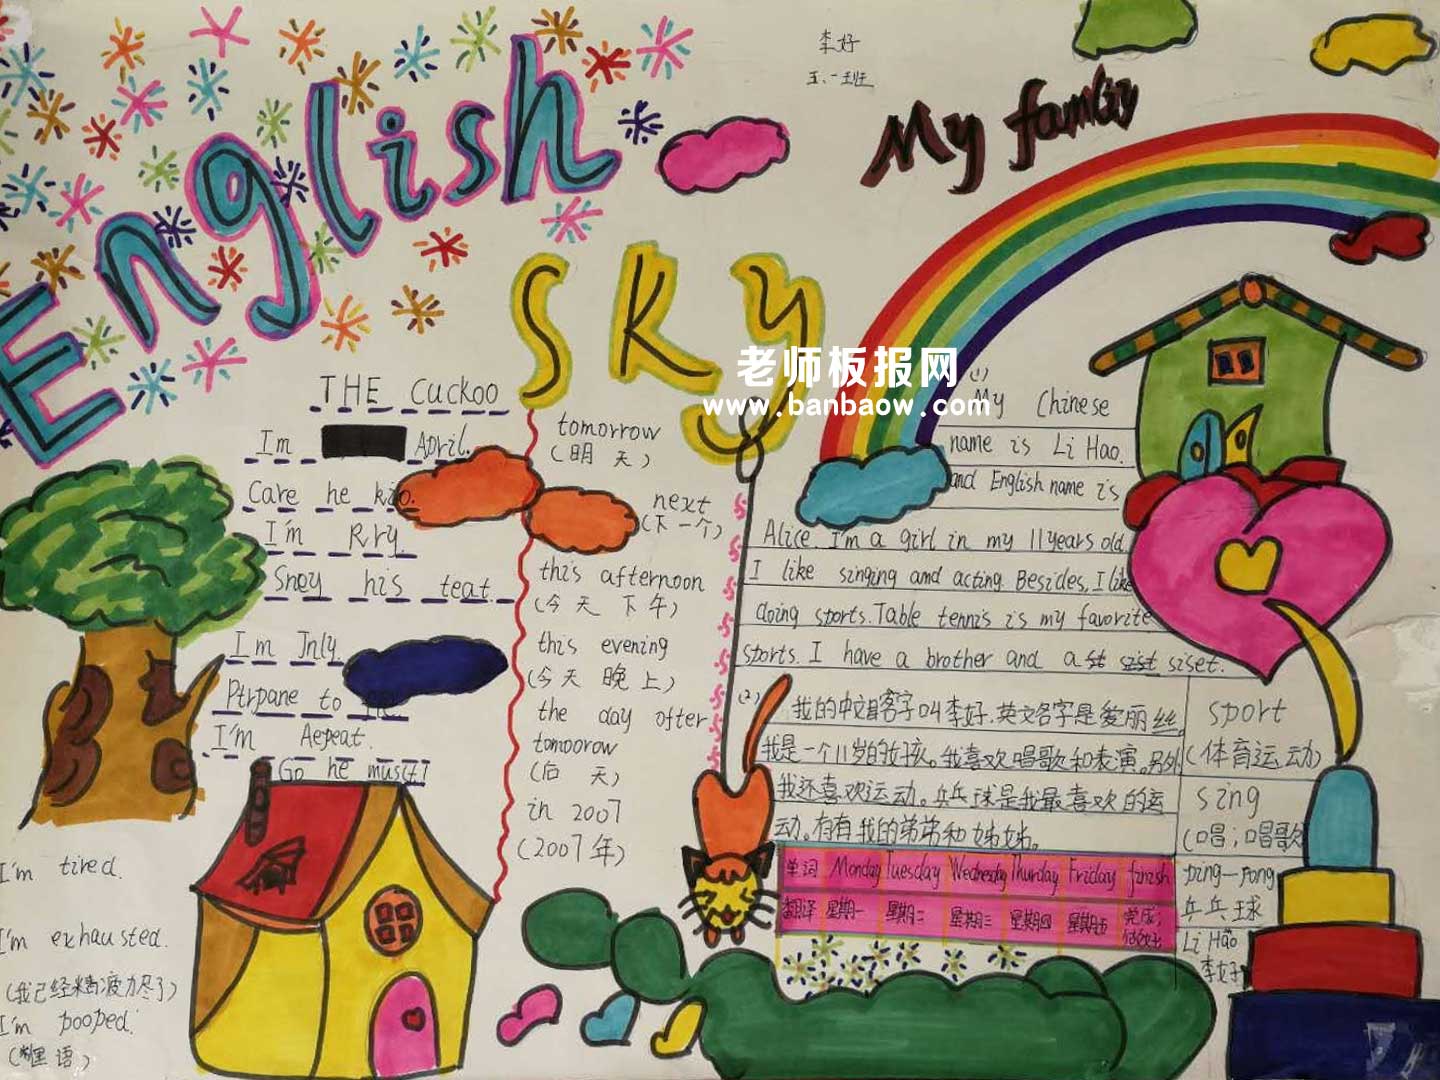 English
李好
五、一班
My family
SKy
老师板报网
www.banbaow.com
THE Cuckoo
Im April.
Care he
I'm Rry.
Sney his teat.
Im Jnly.
Ptrpane to
I'M Aepeat.
Go he must!
tomorrow
(明天)
next
(下一个)
this afternoon
(今天下午)
this evening
(今天晚上)
the day ofter
tomoorow
(后天)
in 2007
(2007年)
(1)
My Chinese
name is Li Hao.
and English name is
Alice. I'm a girl in my 11years old.
I like singing and acting. Besides, I like
doing sports. Table tennis is my favorite
sports. I have a brother and a siset.
(2)
我的中文名字叫李好.英文名字是爱丽丝。
我是一个11岁的女孩。我喜欢唱歌和表演。另外
我还喜欢运动。乒乓球是我最喜欢的运
动。有有我的弟弟和姊姊。
sport
(体育运动)
sing
(唱;唱歌
ping-pong
乒乓球
Li Hao
李好
单词 Monday Tuesday Wednesday Thurday Friday finish
翻译 星期一 星期二 星期三 星期四 星期五 完成;
I'm tired.
I'm exhausted.
(我已经精疲力尽了)
I'm pooped.
(俚语)